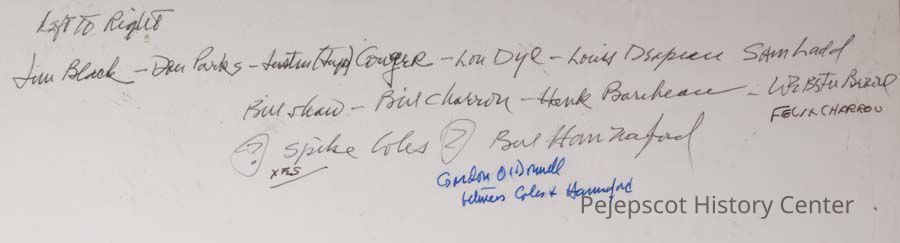 Left to Right
Jim Black – Don Parks – Justin (Jup) Conger – Lou Dyl – Louis Drapeau Sam Ladd
Bill Shaw – Bill Charron – Hank Baribeau – Webster
FELIX CHARRON
(?) Spike Coles (?) Bill Hannaford
YES
Gordon O'Donnell
between Coles + Hannaford
Pejepscot History Center